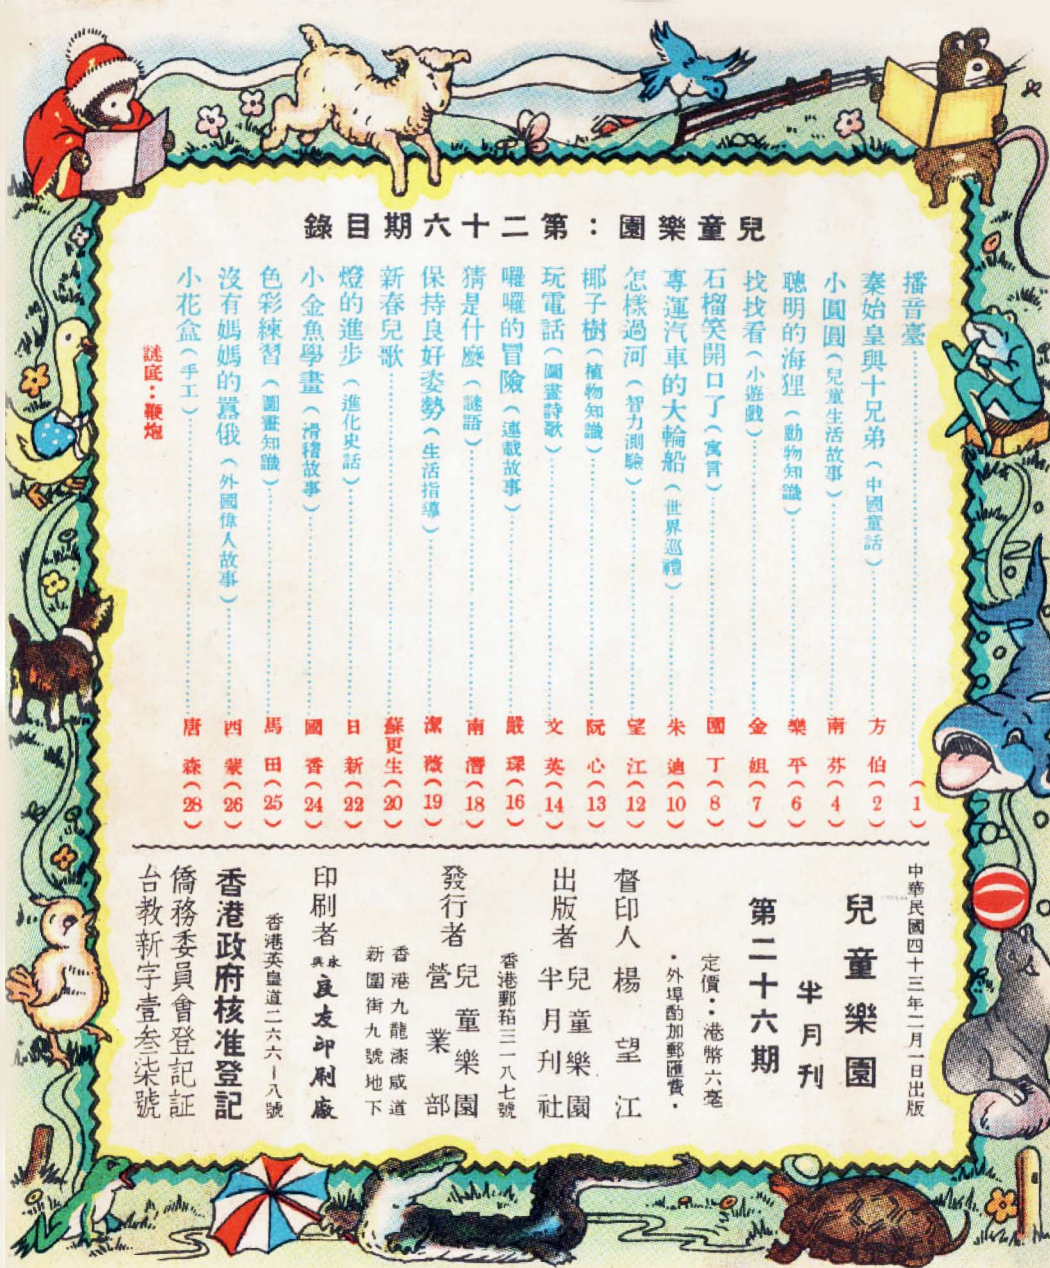 兒童樂園：第二十六期目錄
播音臺……(1)
秦始皇與十兄弟(中國童話)……方伯(2)
小圓圓(兒童生活故事)……南芬(4)
聰明的海狸(動物知識)……樂平(6)
找找看(小遊戲)……金姐(7)
石榴笑開口了(寓言)……國丁(8)
專運汽車的大輪船(世界巡禮)……朱迪(10)
怎樣過河(智力測驗)……望江(12)
椰子樹(植物知識)……阮心(13)
玩電話(圖畫詩歌)……文英(14)
囉囉的冒險(連載故事)……嚴琛(16)
猜是什麼(謎語)……南潛(18)
保持良好姿勢(生活指導)……潔薇(19)
新春兒歌……蘇更生(20)
燈的進步(進化史話)……日新(22)
小金魚學畫(滑稽故事)……國香(24)
色彩練習(圖畫知識)……馬田(25)
沒有媽媽的囂俄(外國偉人故事)……西蒙(26)
小花盒(手工)……唐森(28)
謎底：鞭炮
中華民國四十三年二月一日出版
兒童樂園
半月刊
第二十六期
定價：港幣六毫
·外埠酌加郵匯費·
督印人 楊望江
出版者 兒童樂園半月刊社
香港郵箱三一八七號
發行者 兒童樂園營業部
香港九龍漆咸道
新圍街九號地下
印刷者 永興良友印刷廠
香港英皇道二六六—八號
香港政府核准登記
僑務委員會登記証
台教新字壹叁柒號